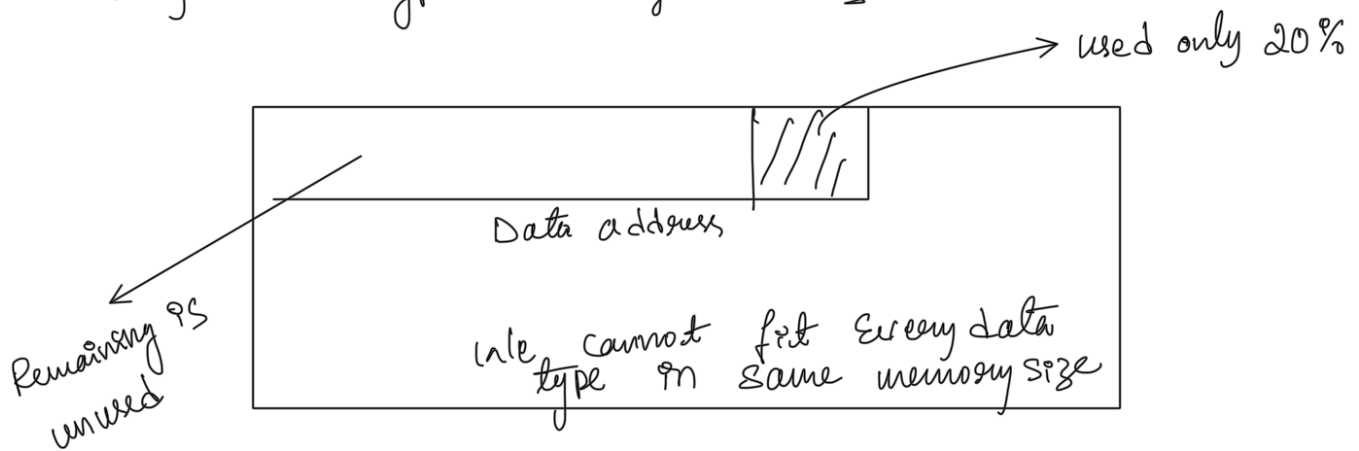 used only 20%
Data address
Remaining is
unused
We cannot fit Every data
type in same memory size